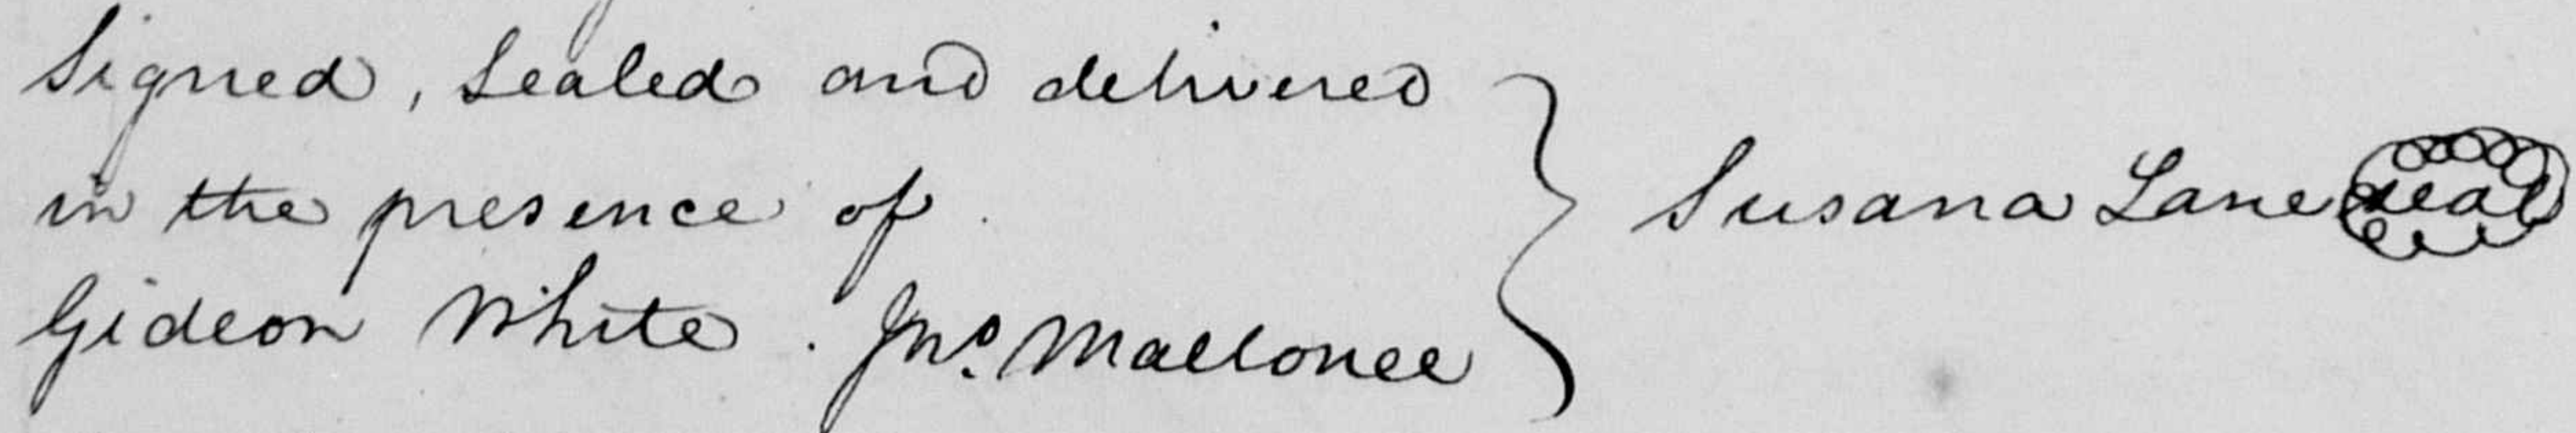 Signed, Sealed and delivered
in the presence of
Gideon White. Jno. Mallonee
Susana Lane seal